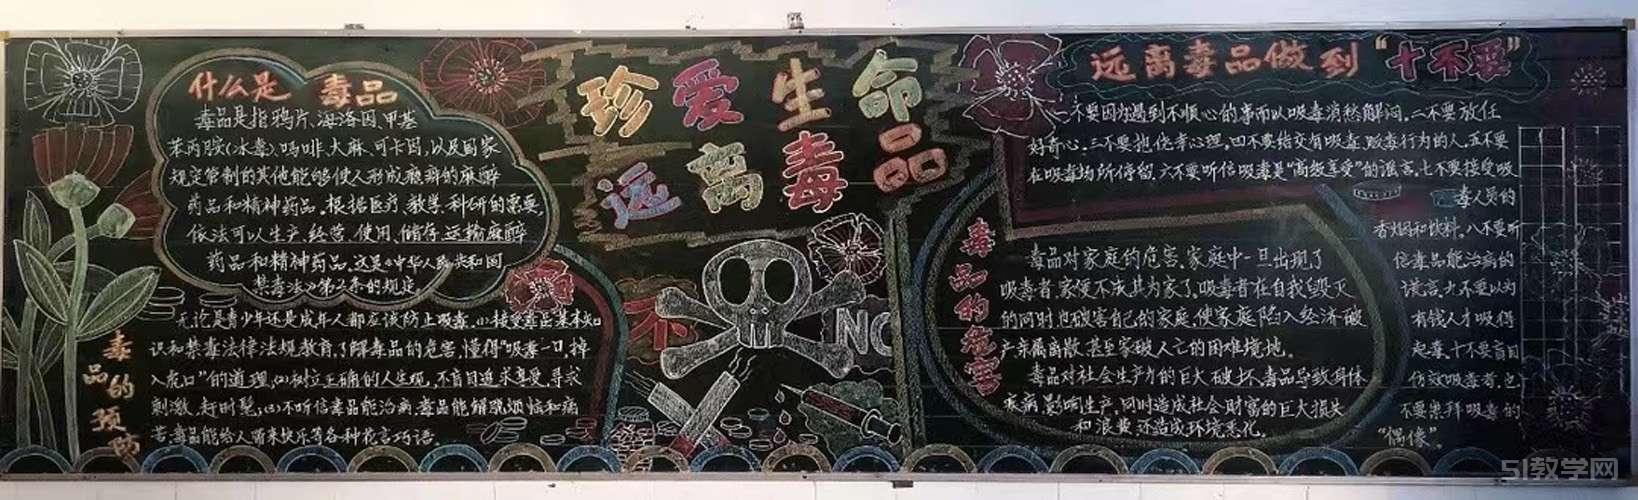 什么是 毒品
毒品是指鸦片、海洛因、甲基
苯丙胺(冰毒)、吗啡、大麻、可卡因,以及国家
规定管制的其他能够使人形成瘾癖的麻醉
药品和精神药品。根据医疗、教学、科研的需要,
依法可以生产、经营、使用、储存、运输麻醉
药品和精神药品。这是《中华人民共和国
禁毒法》第2条的规定。
毒品的预防
无论是青少年还是成年人都应该防止吸毒。(1)接受毒品基本知
识和禁毒法律法规教育,了解毒品的危害,懂得“吸毒一口,掉
入虎口”的道理,(2)树立正确的人生观,不盲目追求享受,寻求
刺激,赶时髦;(3)不听信毒品能治病,毒品能解脱烦恼和痛
苦,毒品能给人带来快乐等各种花言巧语。
珍爱生命
远离毒品
不
NO
远离毒品做到“十不要”
一不要因为遇到不顺心的事而以吸毒消愁解闷。二不要放任
好奇心。三不要抱侥幸心理。四不要结交有吸毒、贩毒行为的人。五不要
在吸毒场所停留。六不要听信吸毒是“高级享受”的谣言。七不要接受吸
毒人员的
香烟和饮料。八不要听
信毒品能治病的
谎言。九不要以为
有钱人才吸得
起毒。十不要盲目
仿效吸毒者,也
不要崇拜吸毒的
“偶像”。
毒品的危害
毒品对家庭的危害。家庭中一旦出现了
吸毒者,家便不成其为家了。吸毒者在自我毁灭
的同时,也破害自己的家庭,使家庭陷入经济破
产、亲属离散、甚至家破人亡的困难境地。
毒品对社会生产力的巨大破坏。毒品导致身体
疾病,影响生产,同时造成社会财富的巨大损失
和浪费,还造成环境恶化。
51教学网